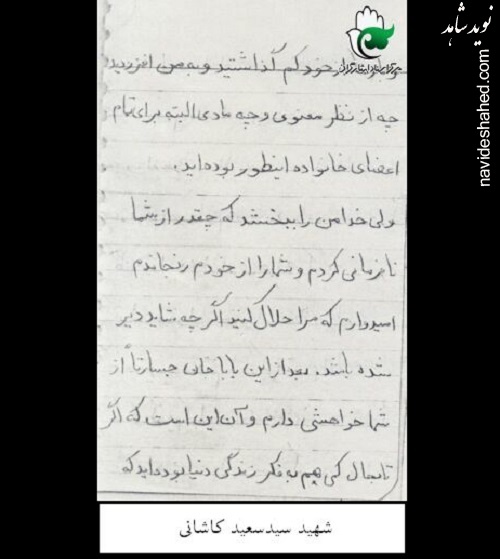 نوید شاهد
navideshahed.com
از خود کم گذاشتید و به من افزودید
چه از نظر معنوی و چه مادی البته برای تمام
اعضای خانواده اینطور بوده‌اید.
ولی خدا من را ببخشد که چقدر از شما
نافرمانی کردم و شما را از خودم رنجاندم
امیدوارم که مرا حلال کنید اگر چه شاید دیر
شده باشد. بعد از این بابا جان جسارتاً از
شما خواهشی دارم و آن این است که اگر
تابحال کمی هم به فکر زندگی دنیا بوده‌اید که
شهید سیدسعید کاشانی